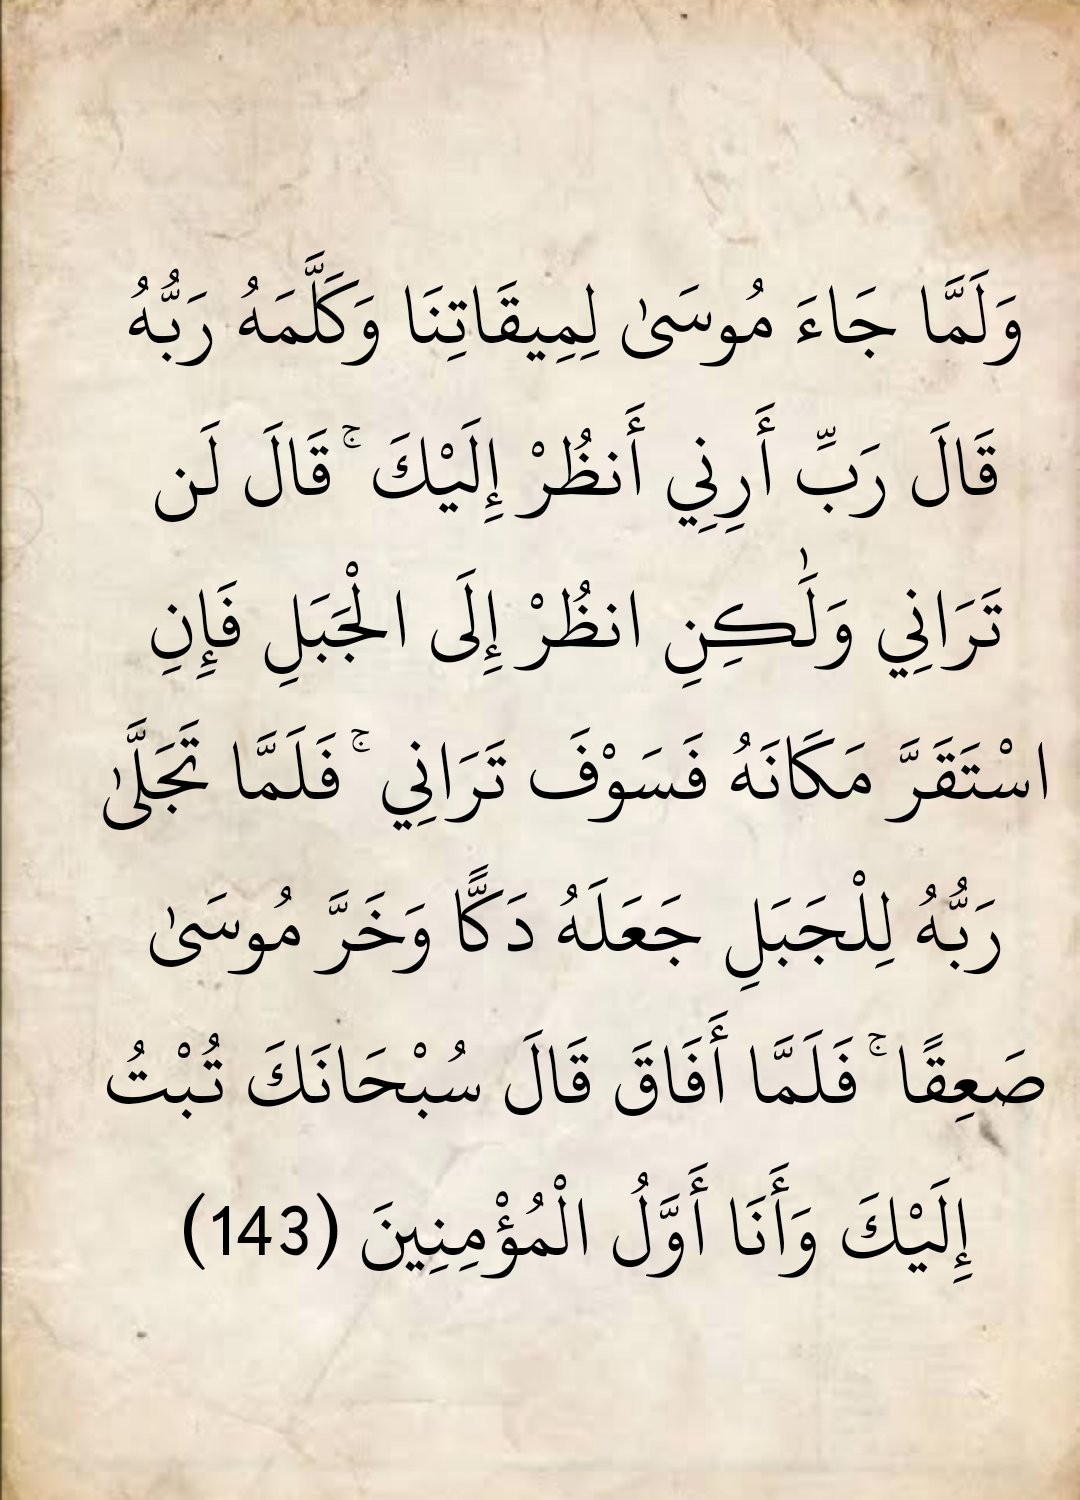 وَلَمَّا جَاءَ مُوسَىٰ لِمِيقَاتِنَا وَكَلَّمَهُ رَبُّهُ
قَالَ رَبِّ أَرِنِي أَنظُرْ إِلَيْكَ ۚ قَالَ لَن
تَرَانِي وَلَٰكِنِ انظُرْ إِلَى الْجَبَلِ فَإِنِ
اسْتَقَرَّ مَكَانَهُ فَسَوْفَ تَرَانِي ۚ فَلَمَّا تَجَلَّىٰ
رَبُّهُ لِلْجَبَلِ جَعَلَهُ دَكًّا وَخَرَّ مُوسَىٰ
صَعِقًا ۚ فَلَمَّا أَفَاقَ قَالَ سُبْحَانَكَ تُبْتُ
إِلَيْكَ وَأَنَا أَوَّلُ الْمُؤْمِنِينَ (143)